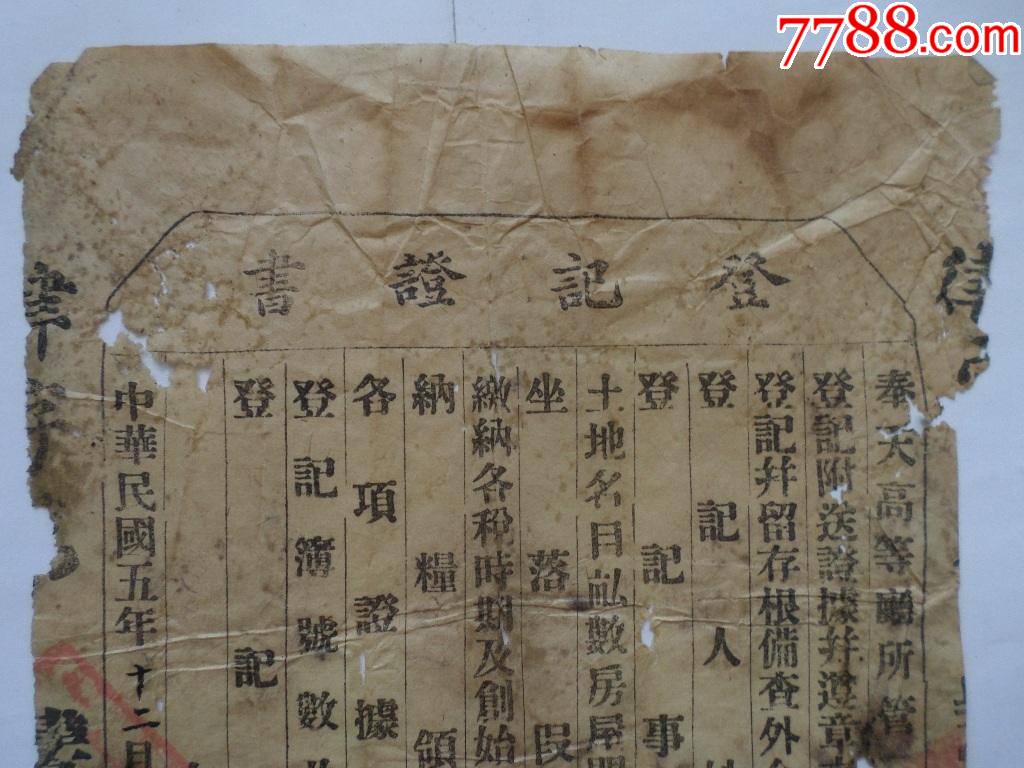 7788.com
登記證書
奉天高等廳所管
登記附送證據幷遵章
登記幷留存根備查外
登記人
登記事
土地名目畝數房屋
坐落
繳納各稅時期及創始
納糧領
各項證據
登記簿號數
登記
中華民國五年十二月